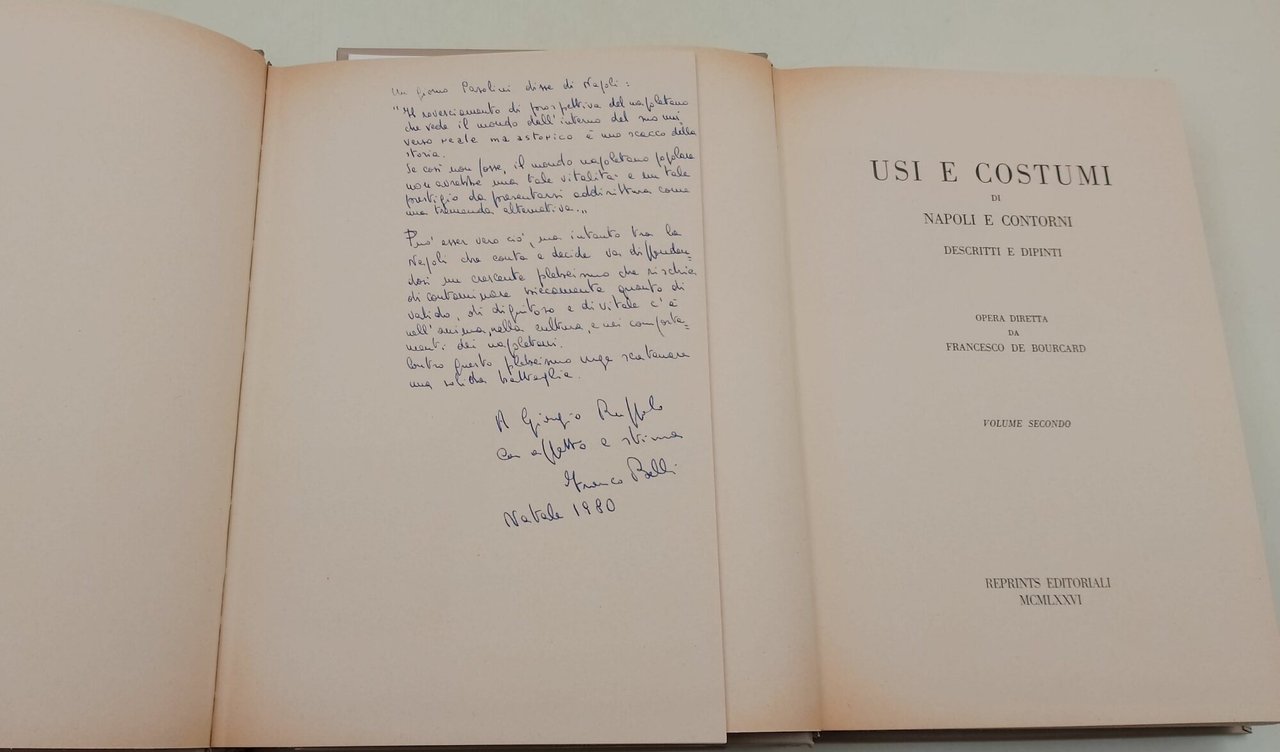 Un giorno Pasolini disse di Napoli:
"Il rovesciamento di prospettiva del napoletano
che vede il mondo dall'interno del suo uni,
verso reale ma astorico è uno scacco della
storia.
Se così non fosse, il mondo napoletano popolare
non avrebbe una tale vitalità e un tale
prestigio da presentarsi addirittura come
una tremenda alternativa."
Può esser vero ciò, ma intanto tra la
Napoli che conta e decide va diffonden=
dosi un crescente plebeismo che rischia
di contaminare seccamente quanto di
valido, di dignitoso e di vitale c'è
nell'anima, nella cultura, e nei comporta=
menti dei napoletani.
Contro questo plebeismo urge scatenare
una solida battaglia.
A Giorgio Ruffolo
con affetto e stima
Franco Belli
Natale 1980
USI E COSTUMI
DI
NAPOLI E CONTORNI
DESCRITTI E DIPINTI
OPERA DIRETTA
DA
FRANCESCO DE BOURCARD
VOLUME SECONDO
REPRINTS EDITORIALI
MCMLXXVI